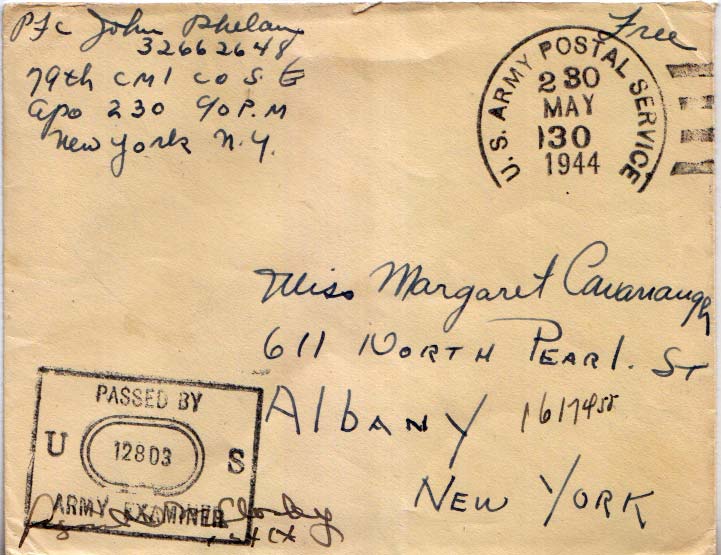 Pfc John Phelan
32662648
79th CMl CO S G
Apo 230 %P.M
New York N.Y.
Free
U.S. ARMY POSTAL SERVICE
230
MAY
30
1944
Miss Margaret Cavanaugh
611 NORTH PEARl. ST
AlBANY
NEW YORK
PASSED BY
U 12803 S
ARMY EXAMINER